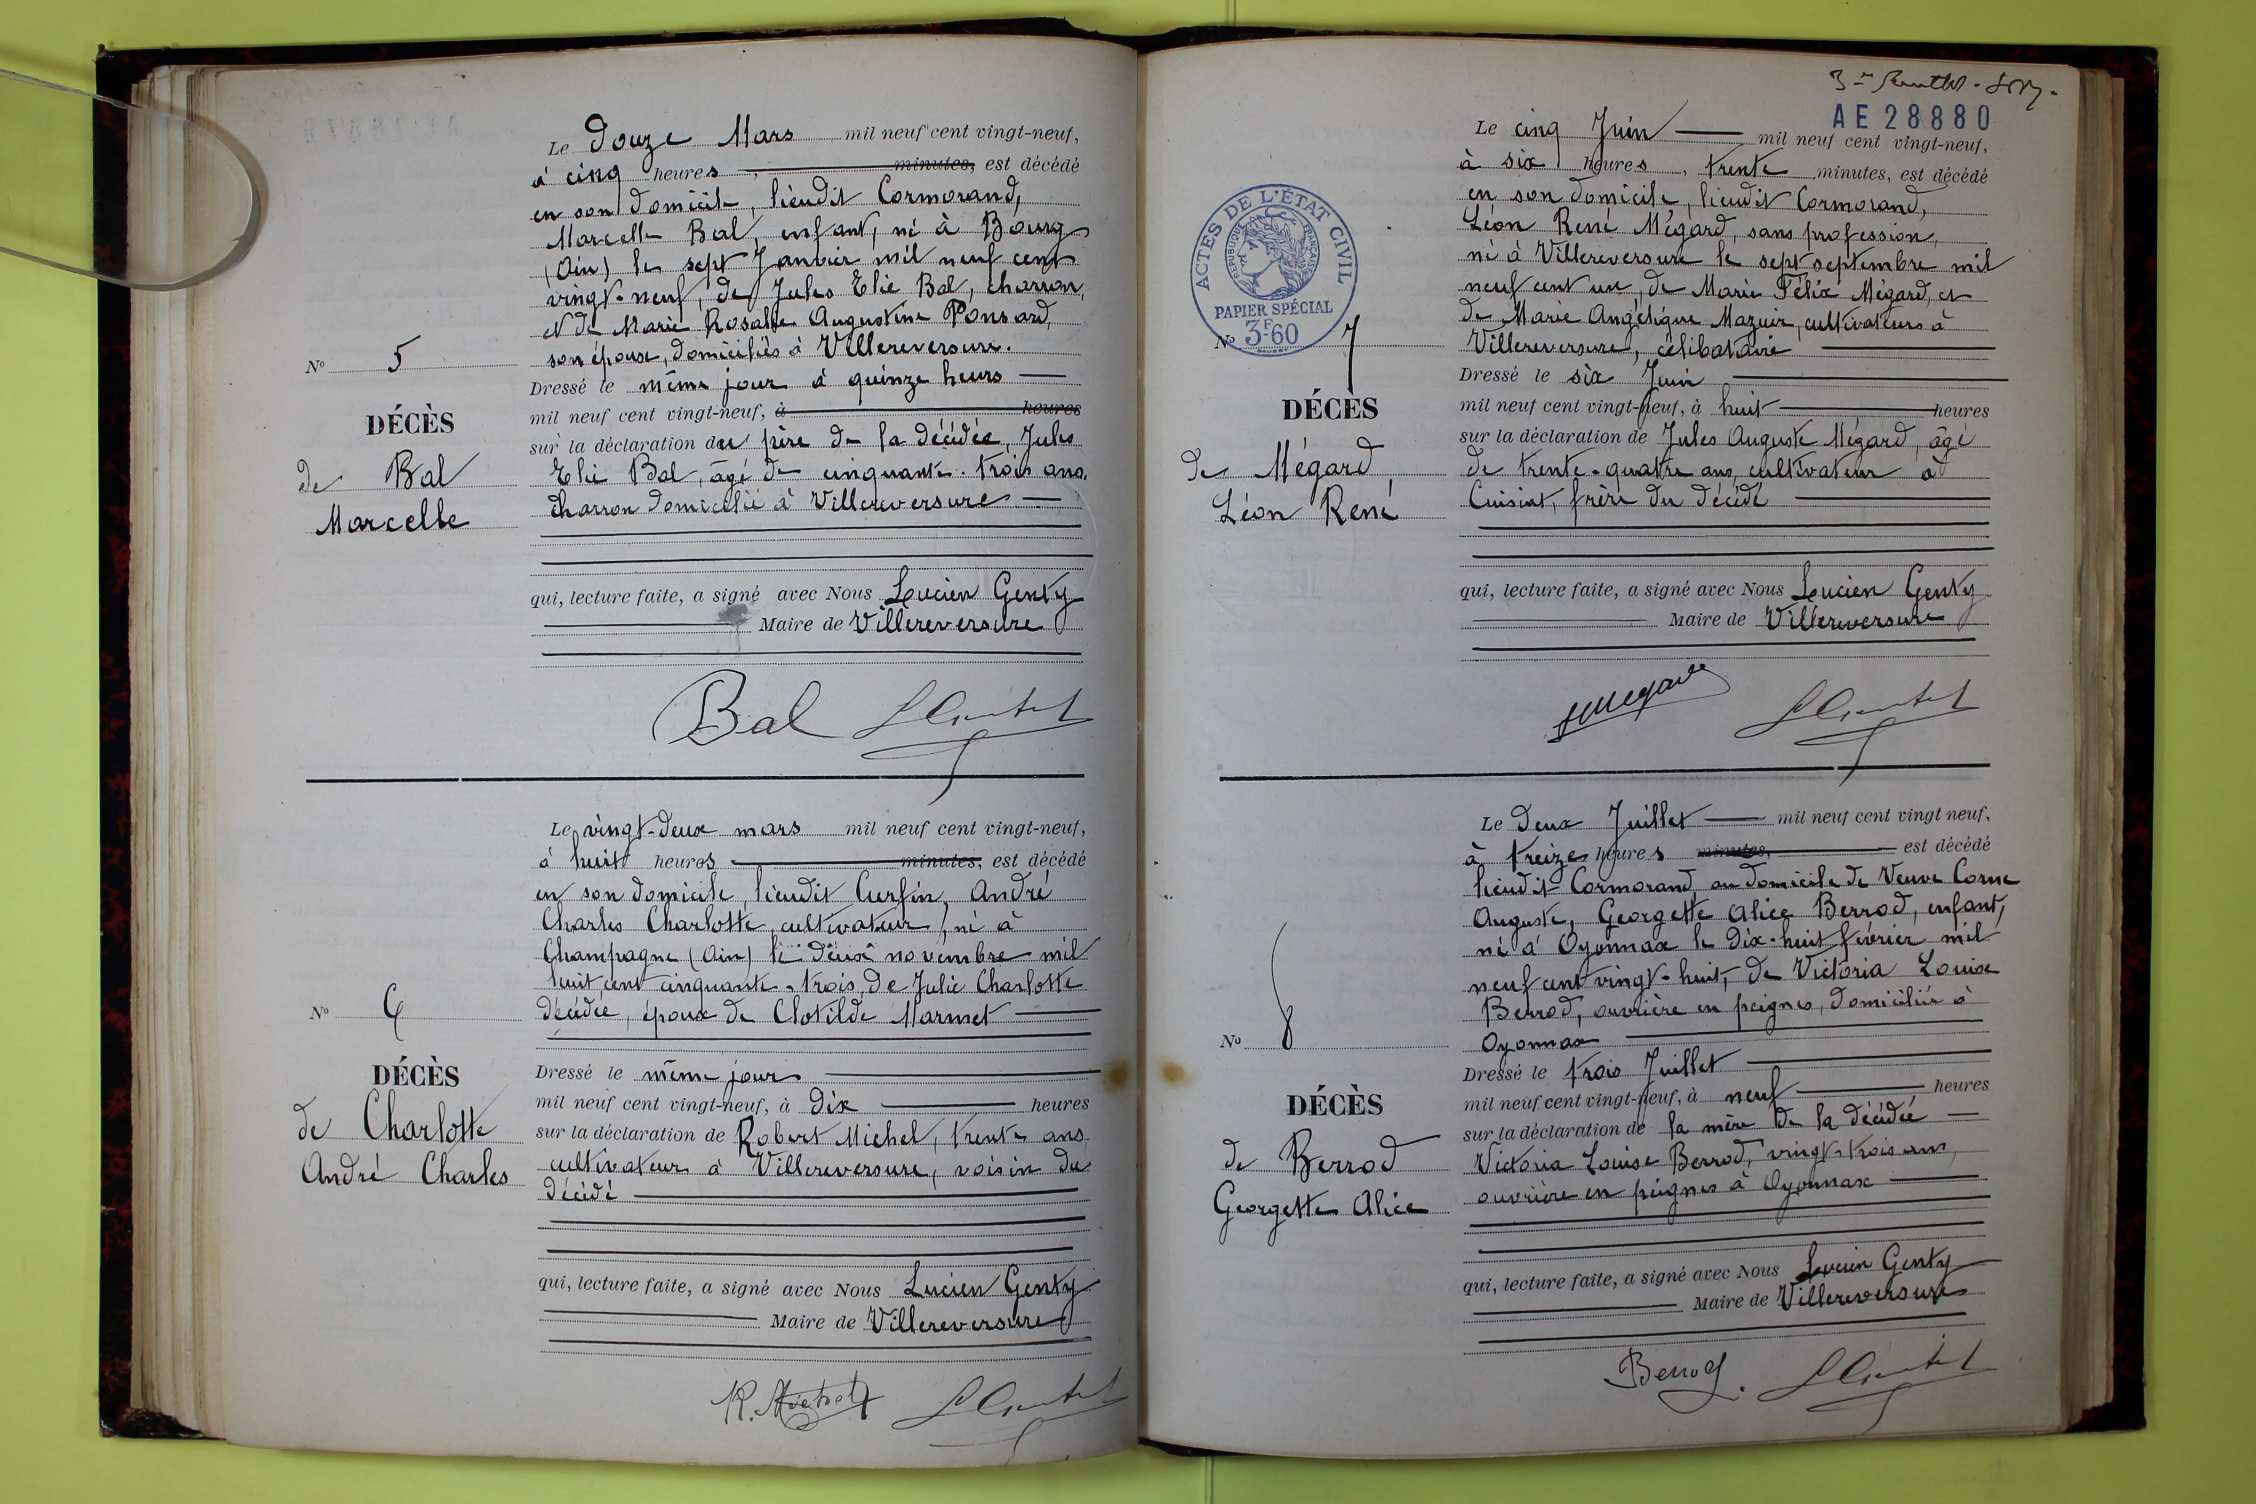 Le douze Mars mil neuf cent vingt-neuf,
à cinq heures minutes, est décédé
en son domicile, lieudit Cormorand,
Marcelle Bal, enfant, né à Bourg
(Ain) le sept Janvier mil neuf cent
vingt-neuf, de Jules Elie Bal, charron,
et de Marie Rosalie Augustine Ponsard,
son épouse, domiciliés à Villereversure.
Dressé le même jour à quinze heures
mil neuf cent vingt-neuf, à heures
sur la déclaration du père de la décédée, Jules
Elie Bal, âgé de cinquante-trois ans,
charron domicilié à Villereversure
qui, lecture faite, a signé avec Nous Lucien Genty
Maire de Villereversure
Bal
No 5
DÉCÈS
de Bal
Marcelle
Le vingt-deux mars mil neuf cent vingt-neuf,
à huit heures minutes, est décédé
en son domicile, lieudit Curfin, André
Charles Charlotte, cultivateur, né à
Champagne (Ain) le deux novembre mil
huit cent cinquante-trois, de Julie Charlotte
décédée, époux de Clotilde Marmet
Dressé le même jour
mil neuf cent vingt-neuf, à dix heures
sur la déclaration de Robert Michel, trente ans,
cultivateur à Villereversure, voisin du
décédé
qui, lecture faite, a signé avec Nous Lucien Genty
Maire de Villereversure
R. Michel
No 6
DÉCÈS
de Charlotte
André Charles
AE 28880
Le cinq Juin mil neuf cent vingt-neuf,
à six heures, trente minutes, est décédé
en son domicile, lieudit Cormorand,
Léon René Mégard, sans profession,
né à Villereversure le sept septembre mil
neuf cent un, de Marie Félix Mégard, et
de Marie Angélique Mazuir, cultivateurs à
Villereversure, célibataire
Dressé le six Juin
mil neuf cent vingt-neuf, à huit heures
sur la déclaration de Jules Auguste Mégard, âgé
de trente-quatre ans, cultivateur à
Cuisiat, frère du décédé
qui, lecture faite, a signé avec Nous Lucien Genty
Maire de Villereversure
ACTES DE L'ÉTAT CIVIL
RÉPUBLIQUE FRANÇAISE
PAPIER SPÉCIAL
3F-60
No 7
DÉCÈS
de Mégard
Léon René
Le deux Juillet mil neuf cent vingt neuf,
à treize heures minutes, est décédé
lieudit Cormorand au domicile de Veuve Corne
Auguste, Georgette Alice Berrod, enfant,
né à Oyonnax le dix-huit février mil
neuf cent vingt-huit, de Victoria Louise
Berrod, ouvrière en peignes, domiciliée à
Oyonnax
Dressé le trois Juillet
mil neuf cent vingt-neuf, à neuf heures
sur la déclaration de la mère de la décédée
Victoria Louise Berrod, vingt-trois ans,
ouvrière en peignes à Oyonnax
qui, lecture faite, a signé avec Nous Lucien Genty
Maire de Villereversure
Berrod
No 8
DÉCÈS
de Berrod
Georgette Alice